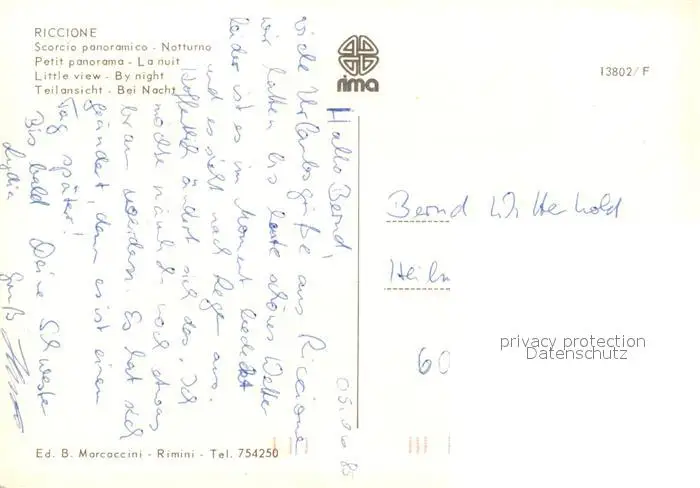 RICCIONE
Scorcio panoramico - Notturno
Petit panorama - La nuit
Little view - By night
Teilansicht - Bei Nacht
rima
13802/F
Hallo Bernd,
viele Urlaubsgrüße aus Riccione
wir hatten bis heute schönes Wetter
leider ist es im Moment bedeckt
und es sieht nach Regen aus.
Hoffentlich ändert sich das. Ich
möchte nämlich noch etwas
braun werden. Es hat sich
geändert, denn es ist einen
Tag später!
Bis bald Deine Schwester
Lydia
Gruß
Bernd Wittekold
Heil
60
privacy protection
Datenschutz
Ed. B. Marcaccini - Rimini - Tel. 754250